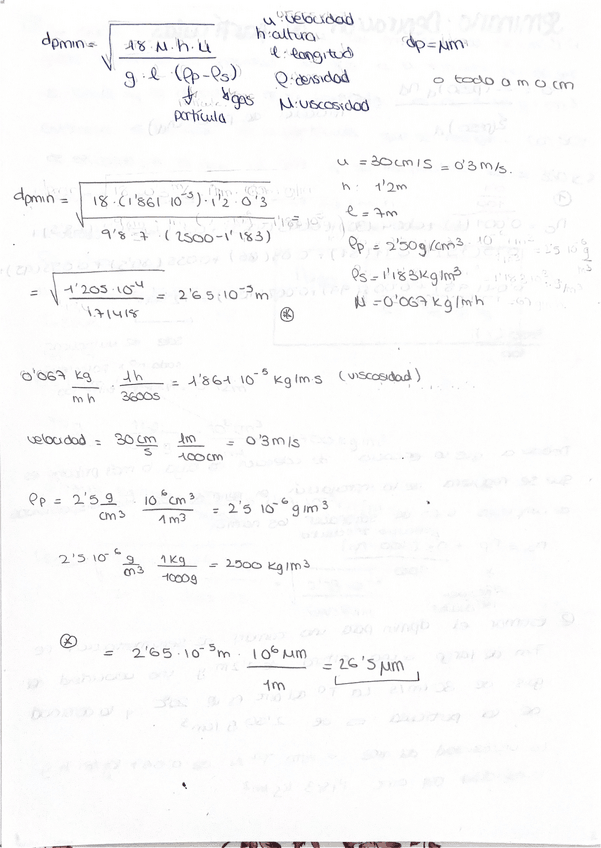 dpmin = √(18 · μ · h · u / g · l · (ρp - ρs))
partícula
gas
u: velocidad
h: altura
l: longitud
ρ: densidad
μ: viscosidad
dp = μm
o todo a m o cm
u = 30 cm/s = 0'3 m/s.
h: 1'2 m
l = 7 m
ρp = 2'50 g/cm³
ρs = 1'183 kg/m³
μ = 0'067 kg/mh
dpmin = √(18 · (1'861 10⁻⁵) · 1'2 · 0'3 / 9'8 · 7 · (2500 - 1'183)) =
= √(1'205 · 10⁻⁴ / 171418) = 2'65 · 10⁻⁵ m
⊛
0'067 kg/mh · 1h/3600s = 1'861 10⁻⁵ kg/m·s (viscosidad)
velocidad = 30 cm/s · 1m/100cm = 0'3 m/s
ρp = 2'5 g/cm³ · 10⁶ cm³/1 m³ = 2'5 10⁻⁶ g/m³
2'5 10⁻⁶ g/m³ · 1 kg/1000 g = 2500 kg/m³
⊛ = 2'65 · 10⁻⁵ m · 10⁶ μm/1m = 26'5 μm